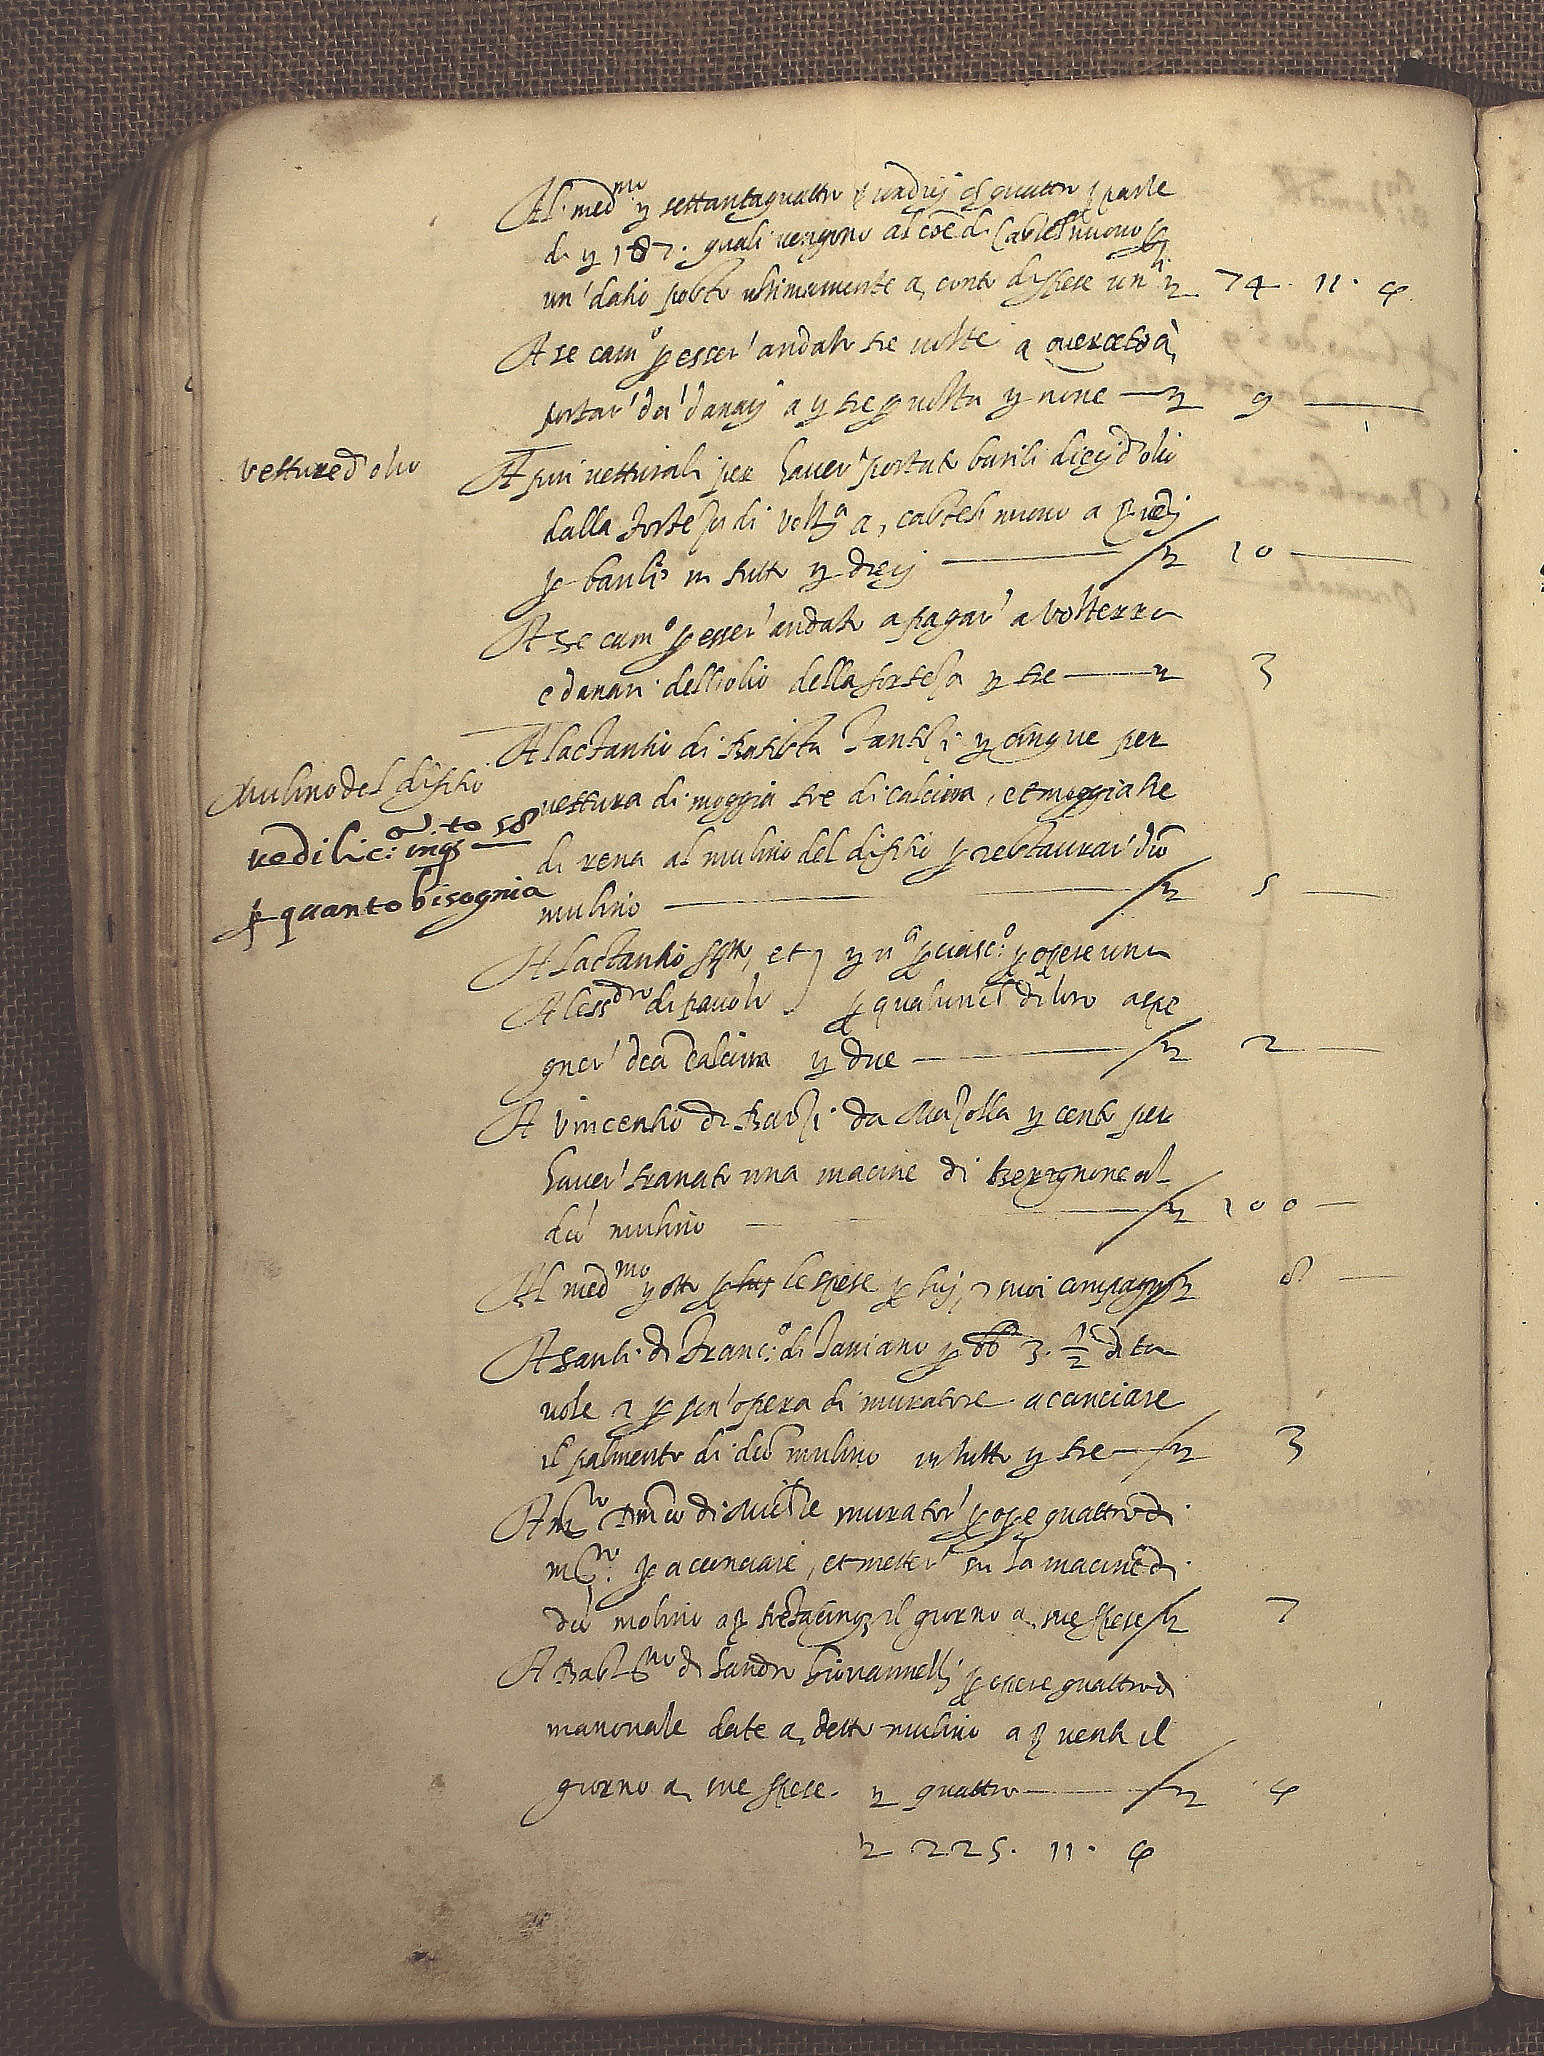 Al med.mo ₤ settantaquattro s. undicj d. quattro p parte
di ₤ 187. quali vengono al cõe di Castel nuovo p
un' datio posto ultimamente a, conto di spese un.li ₤ 74. 11. 4
A se cam.o p esser' andato tre volte a querceto à,
portar' dei danarj a ₤ tre p volta ₤ nove — ₤ 9 —
vetture d'olio
A piu vetturali per haver' portato barili diecj d'olio
dalla fortezza di Volt.a a, castel nuovo a s. venti
p barile in tutto ₤ diecj — ₤ 10 —
A se cam.o p esser' andato a pagar' a Volterra
e danari dell'olio della fortezza ₤ tre — ₤ 3
Mulino del disitio
vedi lic:
p quanto bisognia
A lactantio di Batista ₤ cinque per
vettura di moggia tre di calcina, et moggia tre
di rena al mulino del disitio p restaurar' d.to
mulino — ₤ 5 —
A lactantio s.to, et ₤ n.a p ciasc.o p opere una
Aless.dro di pavolo p qualunche di loro aspe
gner' d.ta calcina ₤ due — ₤ 2 —
A Vincentio di da Mazolla ₤ cento per
haver' tranato una macine di berignone al
d.to mulino — ₤ 100 —
Al med.mo ₤ otto p le spese p luj, e suoi compagnj ₤ 8 —
A santi di Franc.o di p 3. 1/2 di ta
vole e p un' opera di muratore a conciare
il palmento di d.to mulino in tutto ₤ tre — ₤ 3
A m.ro di Michele murator' p op.e quattro di
m.ro p acconciare, et metter' su la macine di
d.to molino a s. trentacinq. il giorno a, sue spese ₤ 7
A Bart.mo di Sandro Giovannellj p opere quattro di
manovale date a, detto mulino a s. venti il
giorno a, sue spese. ₤ quattro — ₤ 4
₤ 225. 11. 4